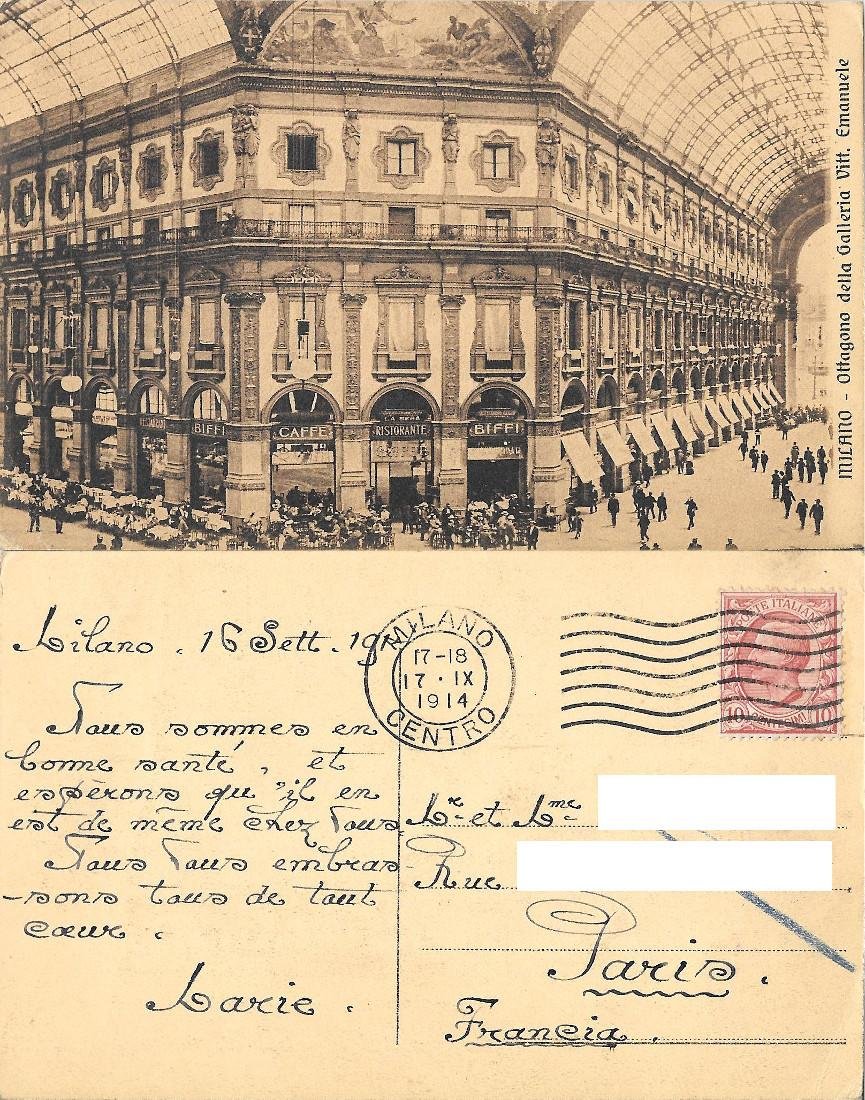 MILANO - Ottagono della Galleria Vitt. Emanuele
BIFFI
CAFFÈ
RISTORANTE
BIFFI
Milano . 16 Sett . 191
MILANO
17-18
17 · IX
1914
CENTRO
POSTE ITALIANE
10 CENTESIMI 10
Nous sommes en
bonne santé , et
espèrons qu'il en
est de même chez Vous.
Nous Vous embras-
-sons tous de tout
cœur .
Marie .
Mr et Mme
Rue
Paris .
Francia .